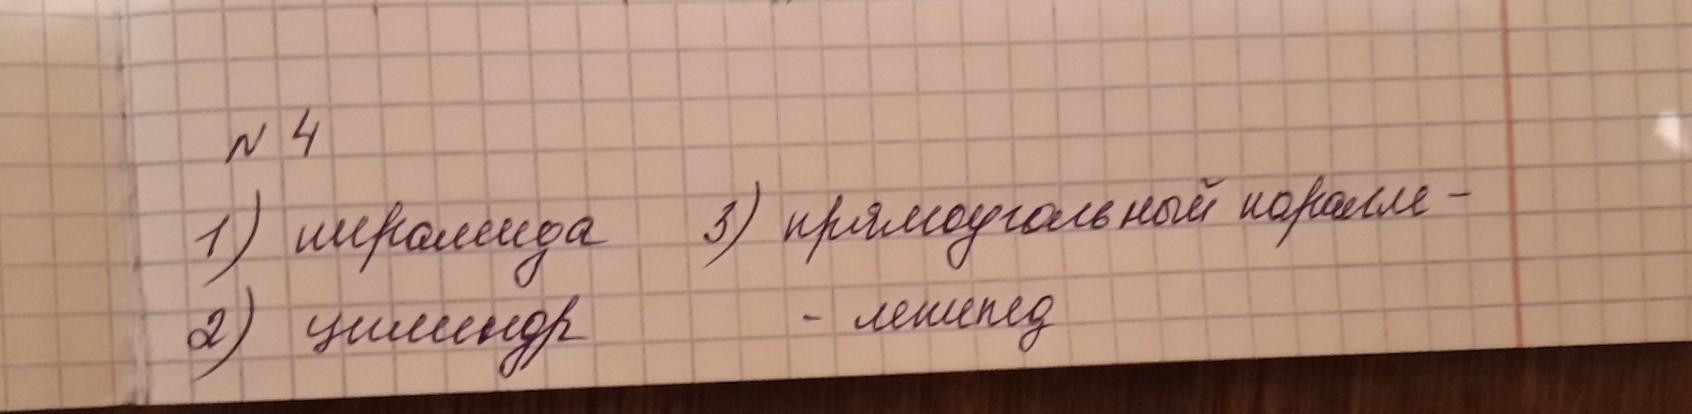 N 4
1) пирамида 3) прямоугольный паралле-
2) цилиндр - лепипед